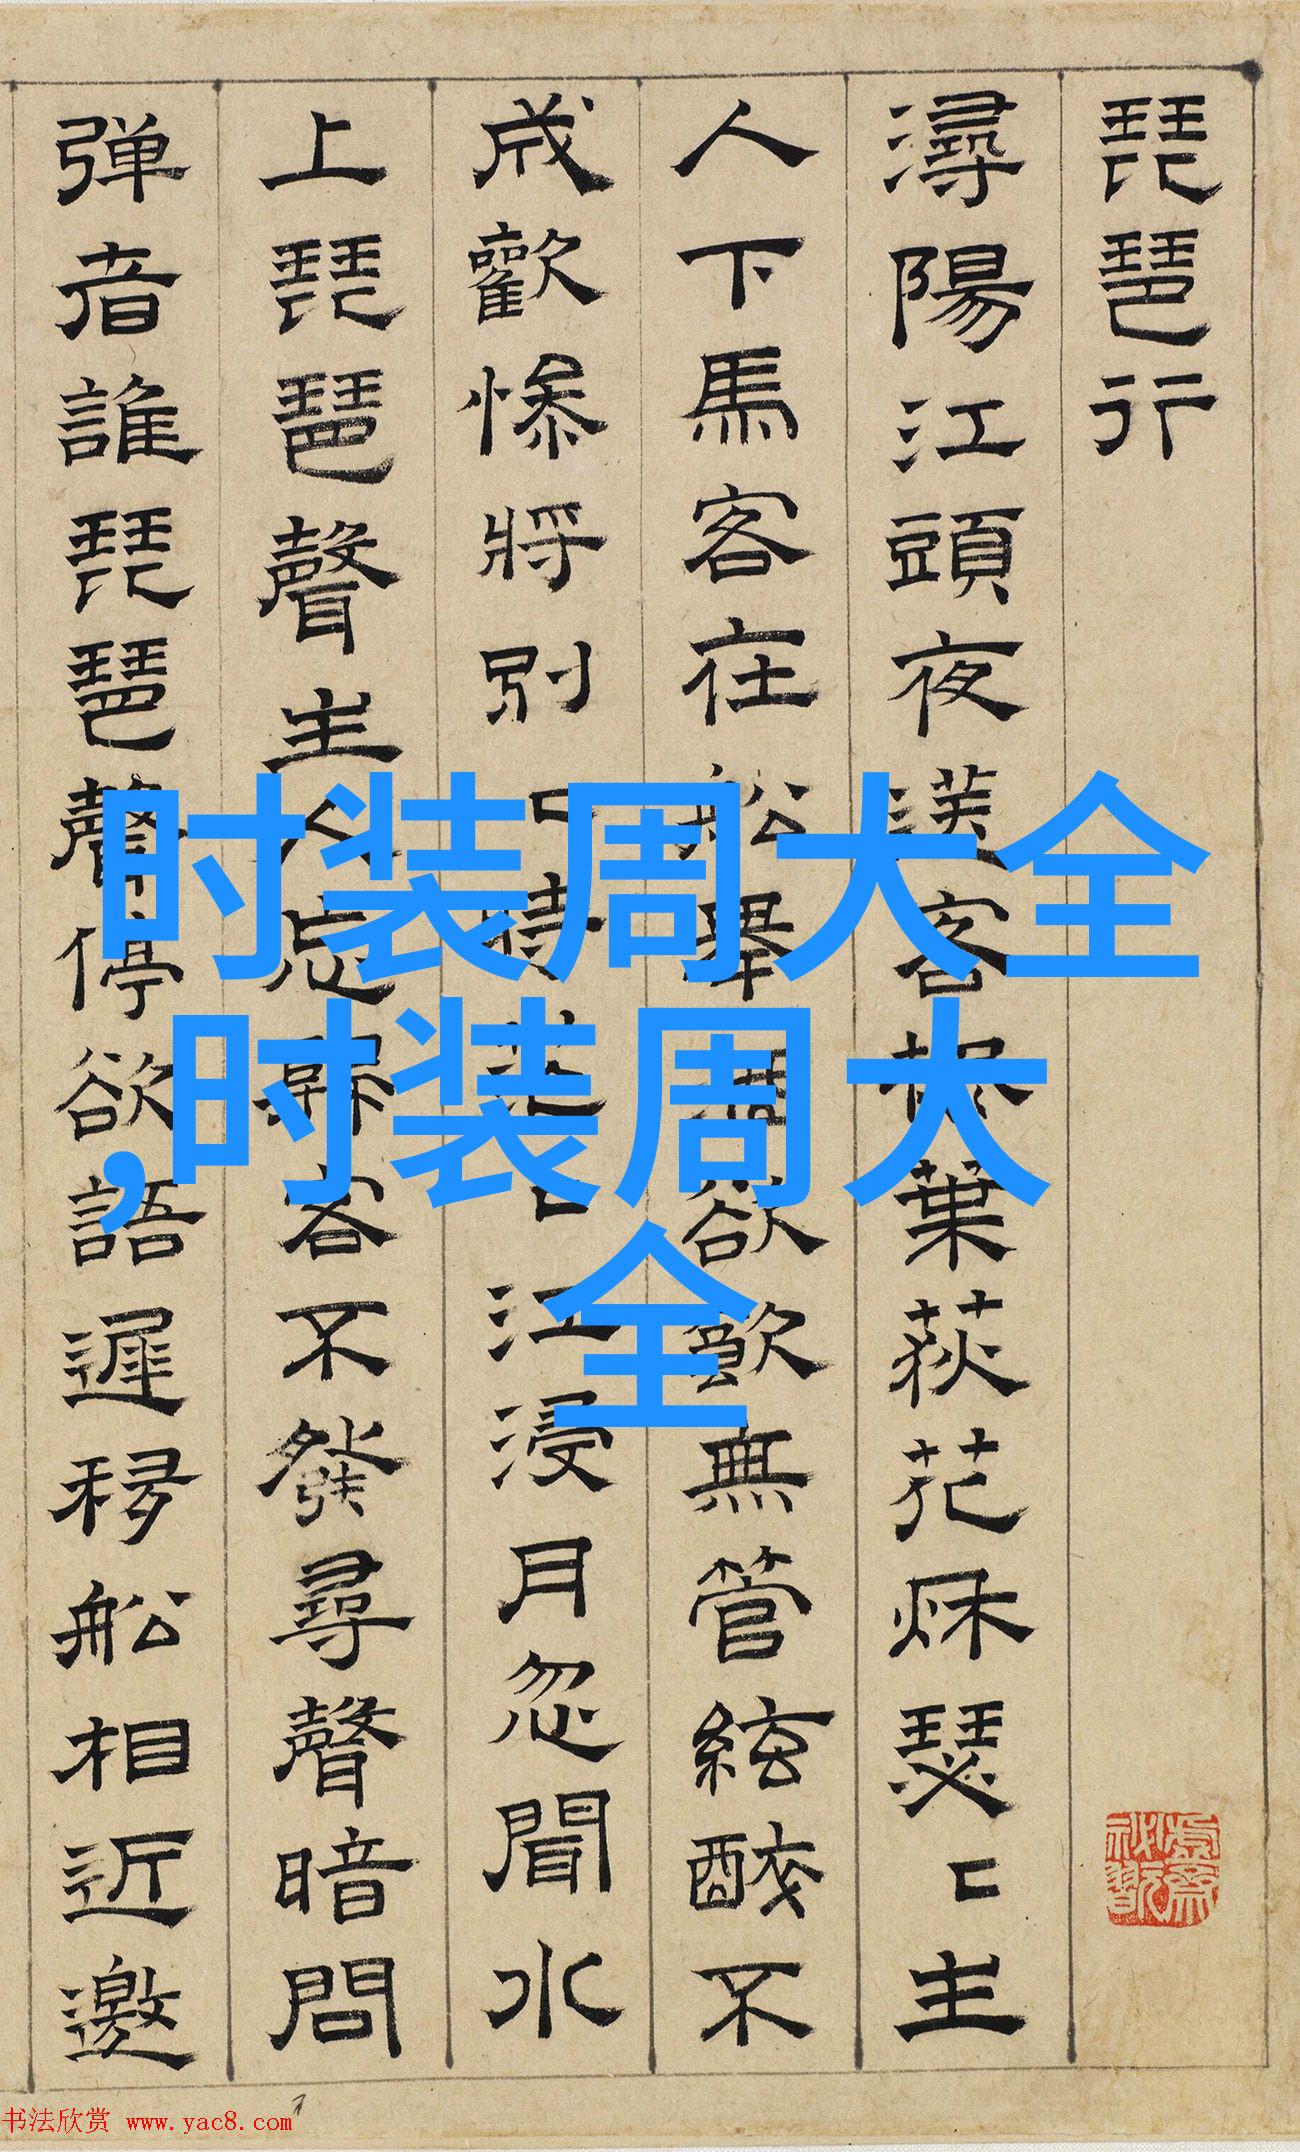 琵琶行
潯陽江頭夜送客楓葉荻花秌瑟〻主
人下馬客在船舉酒欲飲無管絃醉不
成歡慘將別〻時茫〻江浸月忽聞水
上琵琶聲主人忘歸客不發尋聲暗問
弹者誰琵琶聲停欲語遲移船相近邀
时装周大全
,时装周大
全
书法欣赏 www.yac8.com